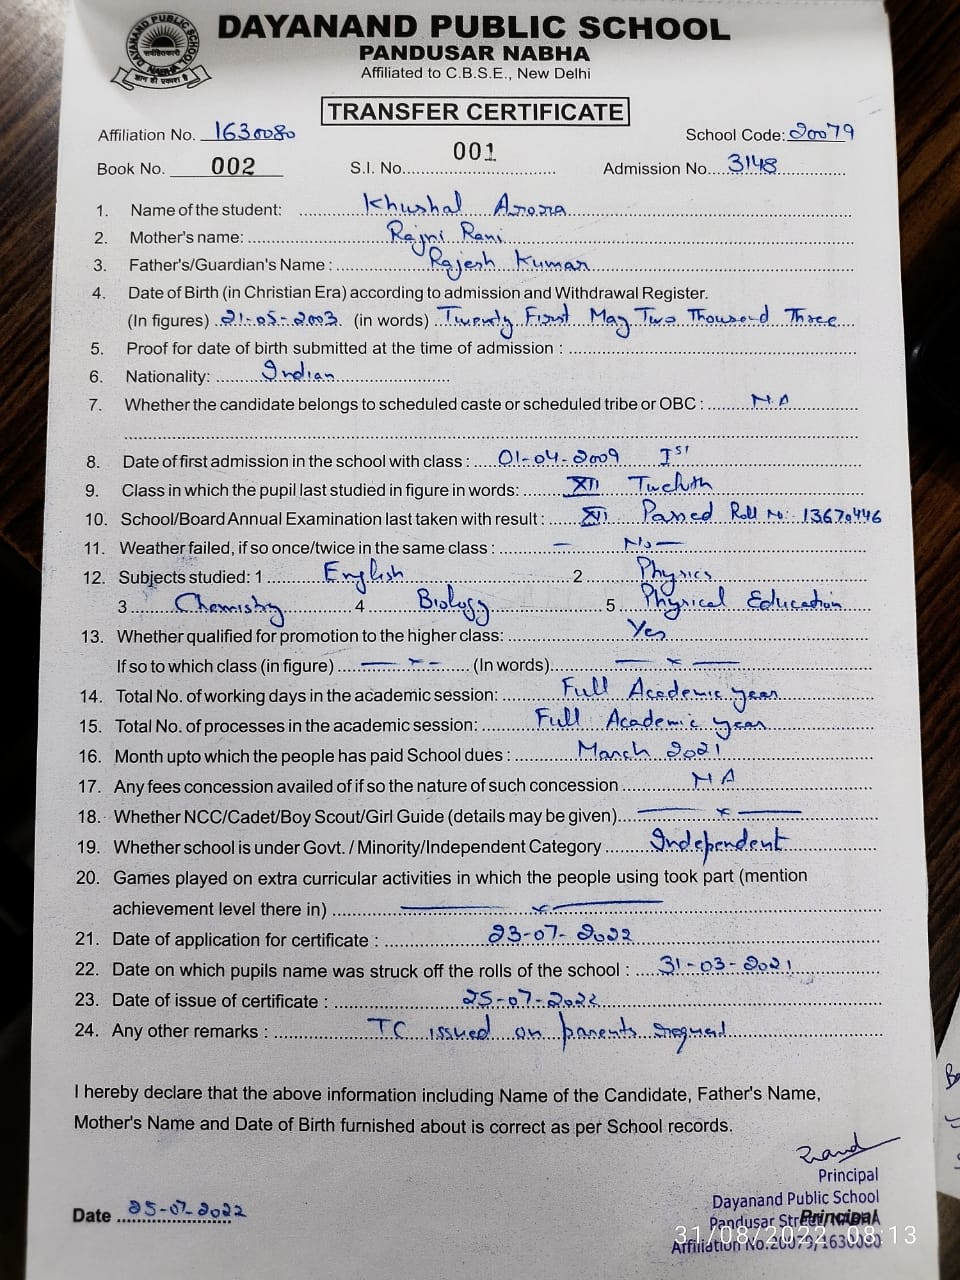 DAYANAND PUBLIC SCHOOL
PANDUSAR NABHA
Affiliated to C.B.S.E., New Delhi
DAYANAND PUBLIC SCHOOL
NABHA
TRANSFER CERTIFICATE
Affiliation No. 1630080 School Code: 20079
Book No. 002 S.I. No. 001 Admission No. 3148
1. Name of the student: Khushal Arora
2. Mother's name: Rajni Rani
3. Father's/Guardian's Name : Rajesh Kumar
4. Date of Birth (in Christian Era) according to admission and Withdrawal Register.
(In figures) 21-05-2003 (in words) Twenty First May Two Thousand Three
5. Proof for date of birth submitted at the time of admission :
6. Nationality: Indian
7. Whether the candidate belongs to scheduled caste or scheduled tribe or OBC : N.A
8. Date of first admission in the school with class : 01-04-2009 Ist
9. Class in which the pupil last studied in figure in words: XII Twelvth
10. School/Board Annual Examination last taken with result : XII Passed Roll No: 13670446
11. Weather failed, if so once/twice in the same class : — No —
12. Subjects studied: 1 English 2 Physics
3 Chemistry 4 Biology 5 Physical Education
13. Whether qualified for promotion to the higher class: Yes
If so to which class (in figure) — x — (In words) — x —
14. Total No. of working days in the academic session: Full Academic year
15. Total No. of processes in the academic session: Full Academic year
16. Month upto which the people has paid School dues : March 2021
17. Any fees concession availed of if so the nature of such concession NA
18. Whether NCC/Cadet/Boy Scout/Girl Guide (details may be given) — x —
19. Whether school is under Govt. / Minority/Independent Category Independent
20. Games played on extra curricular activities in which the people using took part (mention
achievement level there in) — x —
21. Date of application for certificate : 23-07-2022
22. Date on which pupils name was struck off the rolls of the school : 31-03-2021
23. Date of issue of certificate : 25-07-2022
24. Any other remarks : TC issued on parents request
I hereby declare that the above information including Name of the Candidate, Father's Name,
Mother's Name and Date of Birth furnished about is correct as per School records.
Principal
Dayanand Public School
Pandusar Street, NABHA
Principal
Date 25-07-2022
Affiliation No.20079/1630080
31/08/2022 08:13